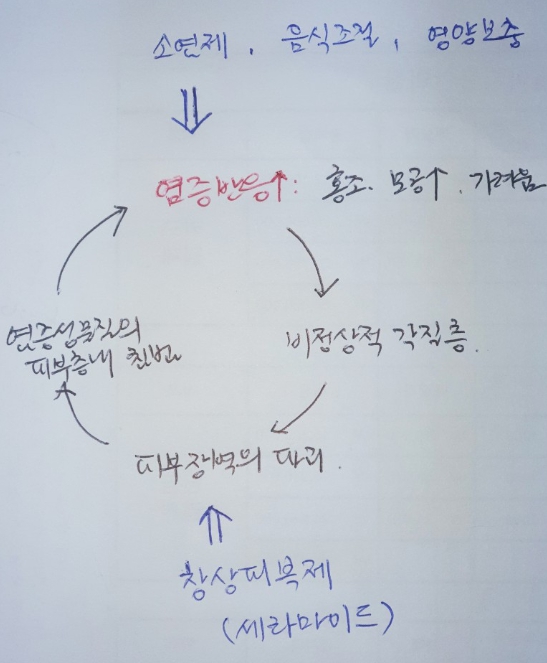 소염제, 음식조절, 영양보충
염증반응↑: 홍조. 모공↑. 가려움
비정상적 각질층.
염증성물질의
피부층내 침범.
피부장벽의 파괴.
창상피복제
(세라마이드)